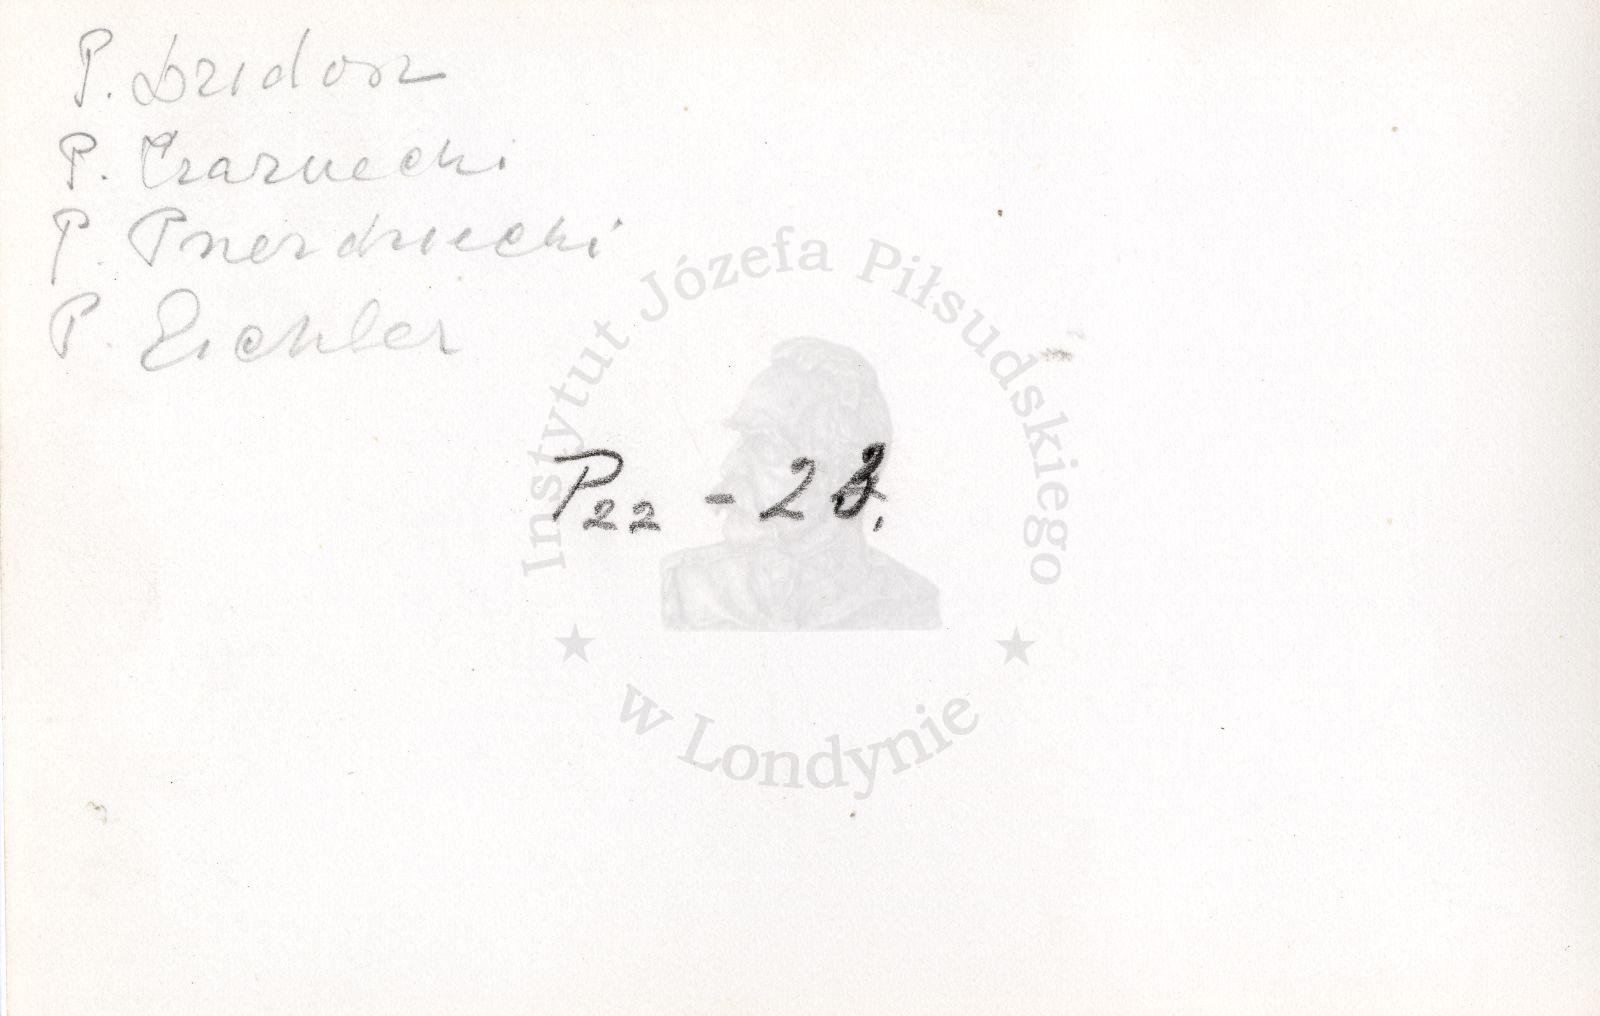 P. Dzidosz
P. Czarnecki
P. Pnerdziecki
P. Eichler
Instytut Józefa Piłsudskiego
P22 - 23.
★ ★
w Londynie